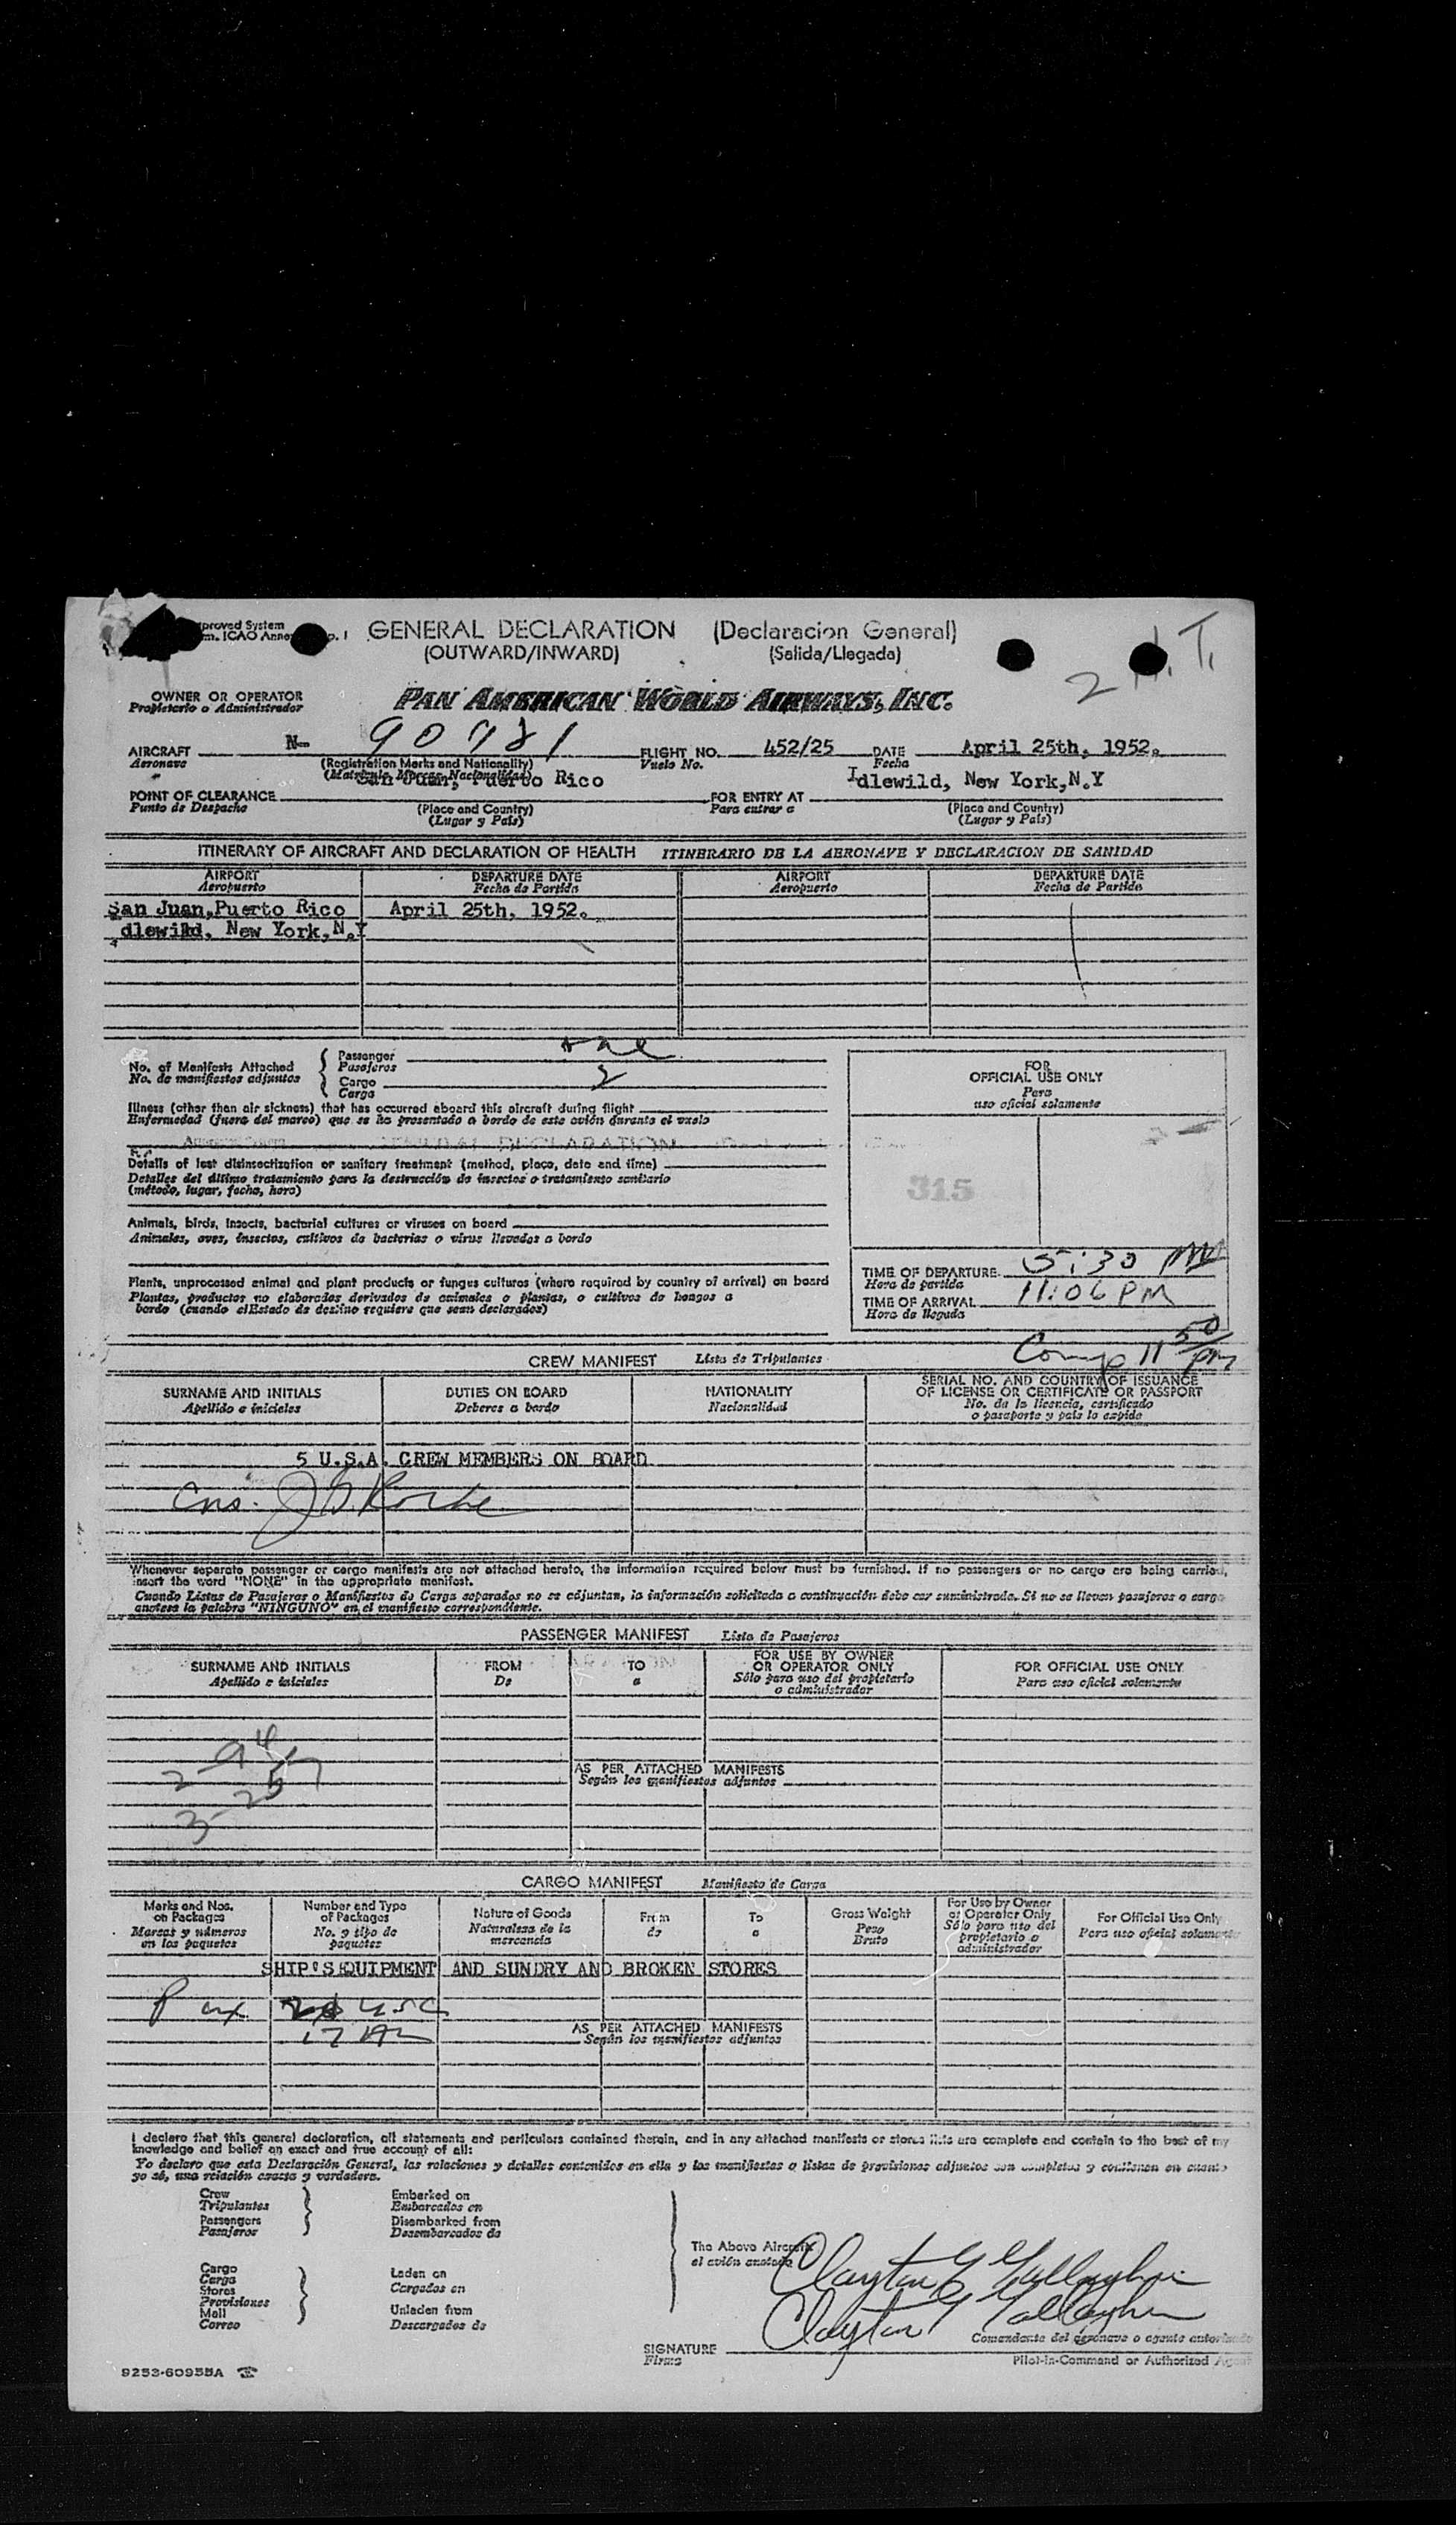 GENERAL DECLARATION (Declaracion General)
(OUTWARD/INWARD) (Salida/Llegada)
OWNER OR OPERATOR
Propietario o Administrador
PAN AMERICAN WORLD AIRWAYS, INC.
AIRCRAFT N- FLIGHT NO. 452/25 DATE April 25th, 1952.
Aeronave (Registration Marks and Nationality) Vuelo No. Fecha
San Juan, Puerto Rico Idlewild, New York,N.Y
POINT OF CLEARANCE FOR ENTRY AT
Punto de Despacho (Place and Country) Para entrar a (Place and Country)
(Lugar y País) (Lugar y País)
ITINERARY OF AIRCRAFT AND DECLARATION OF HEALTH ITINERARIO DE LA AERONAVE Y DECLARACION DE SANIDAD
AIRPORT DEPARTURE DATE AIRPORT DEPARTURE DATE
Aeropuerto Fecha de Partida Aeropuerto Fecha de Partida
San Juan,Puerto Rico April 25th, 1952.
dlewild, New York,N.Y
No. of Manifests Attached
No. de manifiestos adjuntos
Passenger one
Pasajeros
Cargo 2
Carga
FOR
OFFICIAL USE ONLY
Para
uso oficial solamente
Illness (other than air sickness) that has occurred aboard this aircraft during flight
Enfermedad (fuera del mareo) que se ha presentado a bordo de este avión durante el vuelo
Details of last disinsectization or sanitary treatment (method, place, date and time)
Detalles del último tratamiento para la destrucción de insectos o tratamiento sanitario
(método, lugar, fecha, hora)
315
Animals, birds, insects, bacterial cultures or viruses on board
Animales, aves, insectos, cultivos de bacterias o virus llevados a bordo
Plants, unprocessed animal and plant products or fungus cultures (where required by country of arrival) on board
Plantas, productos no elaborados derivados de animales o plantas, o cultivos de hongos a
bordo (cuando el Estado de destino requiere que sean declarados)
TIME OF DEPARTURE 5:30 PM
Hora de partida
TIME OF ARRIVAL 11:06 PM
Hora de llegada
Comp 11 50 pm
CREW MANIFEST Lista de Tripulantes
SURNAME AND INITIALS DUTIES ON BOARD NATIONALITY SERIAL NO. AND COUNTRY OF ISSUANCE
OF LICENSE OR CERTIFICATE OR PASSPORT
Apellido e iniciales Deberes a bordo Nacionalidad No. de la licencia, certificado
o pasaporte y país lo expide
5 U.S.A. CREW MEMBERS ON BOARD
Whenever separate passenger or cargo manifests are not attached hereto, the information required below must be furnished. If no passengers or no cargo are being carried,
insert the word "NONE" in the appropriate manifest.
Cuando Listas de Pasajeros o Manifiestos de Carga separados no se adjuntan, la información solicitada a continuación debe ser suministrada. Si no se llevan pasajeros o carga
anotese la palabra "NINGUNO" en el manifiesto correspondiente.
PASSENGER MANIFEST Lista de Pasajeros
SURNAME AND INITIALS FROM TO FOR USE BY OWNER OR OPERATOR ONLY FOR OFFICIAL USE ONLY
Apellido e iniciales De a Sólo para uso del propietario o administrador Para uso oficial solamente
AS PER ATTACHED MANIFESTS
Según los manifiestos adjuntos
CARGO MANIFEST Manifiesto de Carga
Marks and Nos. on Packages Number and Type of Packages Nature of Goods From To Gross Weight For Use by Owner or Operator Only For Official Use Only
Marcas y números en los paquetes No. y tipo de paquetes Naturaleza de la mercancía de a Peso Bruto Sólo para uso del propietario o administrador Para uso oficial solamente
SHIP'S EQUIPMENT AND SUNDRY AND BROKEN STORES
AS PER ATTACHED MANIFESTS
Según los manifiestos adjuntos
I declare that this general declaration, all statements and particulars contained therein, and in any attached manifests or stores lists are complete and contain to the best of my
knowledge and belief an exact and true account of all:
Yo declaro que esta Declaración General, las relaciones y detalles contenidos en ella y los manifiestos o listas de provisiones adjuntos son completos y contienen en cuanto
yo sé, una relación exacta y verdadera.
Crew Embarked on
Tripulantes Embarcados en
Passengers Disembarked from
Pasajeros Desembarcados de
The Above Aircraft
el avión anotado
Cargo
Carga
Stores
Provisiones
Mail
Correo
Laden on
Cargados en
Unladen from
Descargados de
Clayton G Gallagher
Clayton G Gallagher
SIGNATURE
Firma
Comandante del aeronave o agente autorizado
Pilot-in-Command or Authorized Agent
9253-60955A